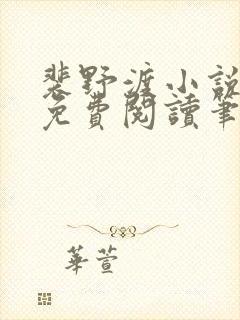 裴野渡小說
免費閱讀筆
華萱